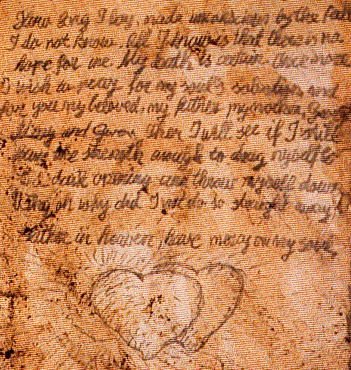 long I lay, made unconscious by the fall
I do not know. All I know is that there is no
hope for me. My death is certain. Once more
I wish to pray for my soul's salvation and
for you my beloved, my father, my mother,
and Then I will see if I still
have the strength enough to drag myself to
dark opening and throw myself down.
oh why did I not do so straight away!
Father in heaven, have mercy on my soul.